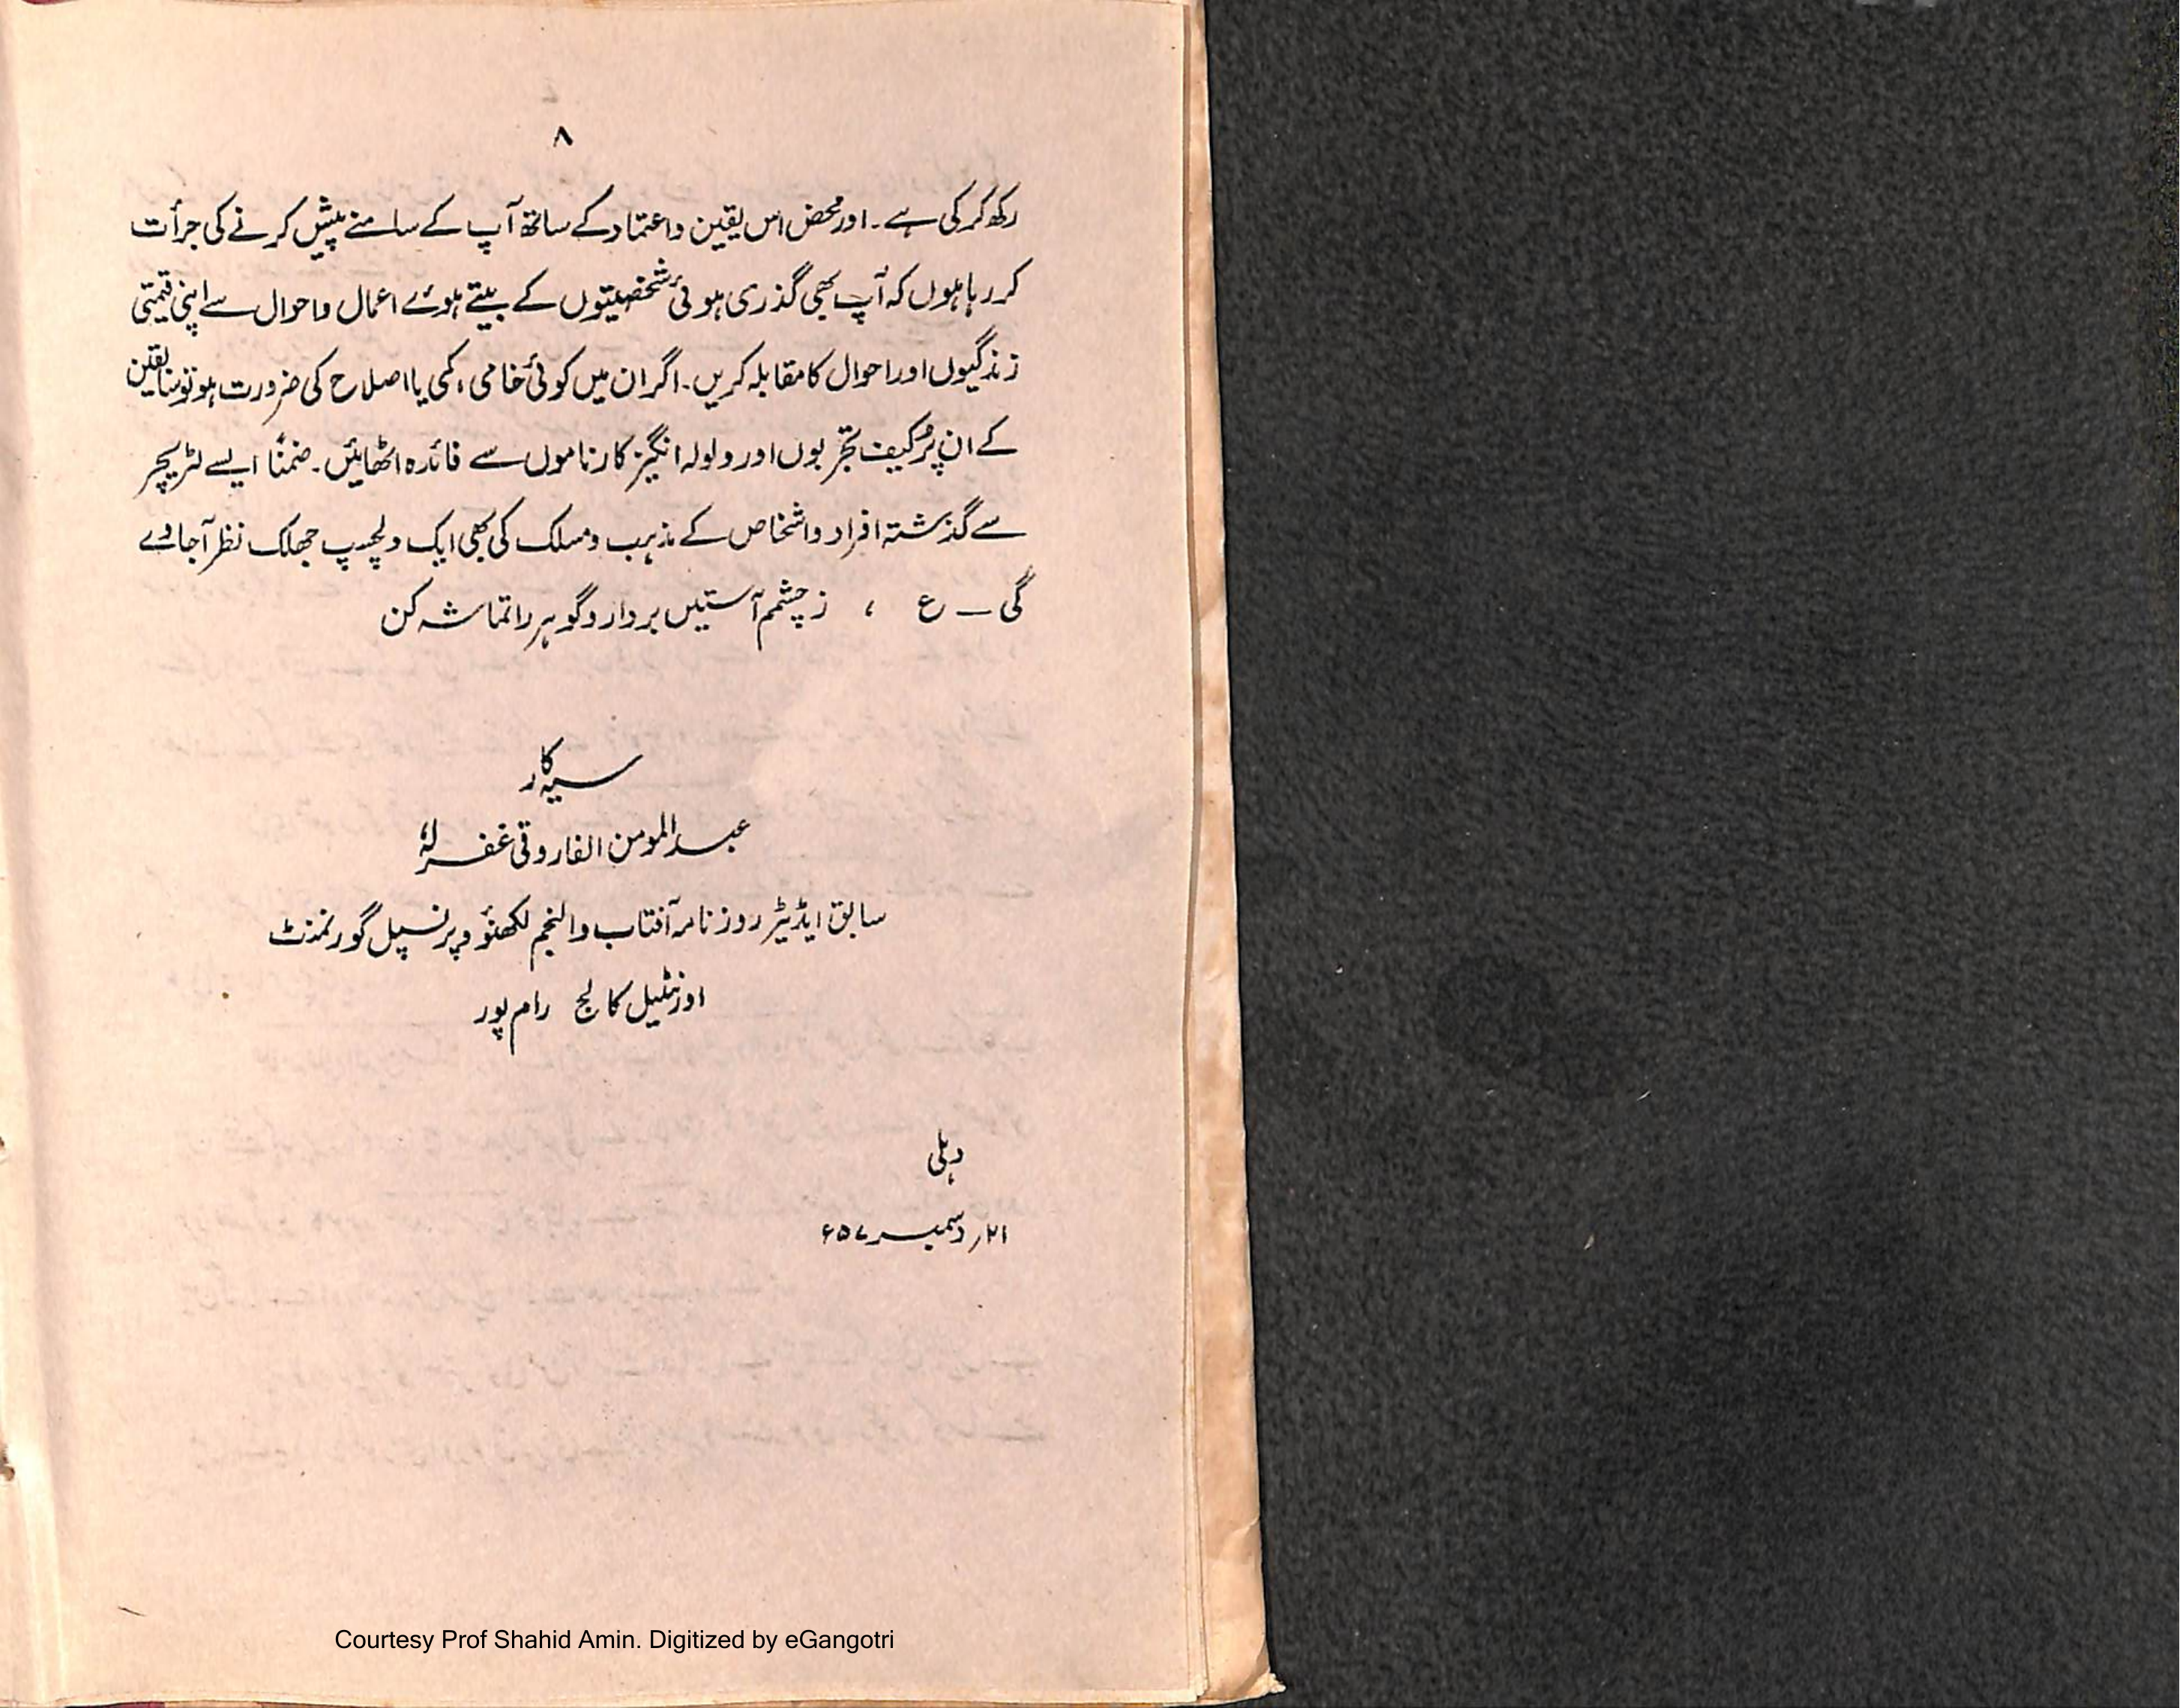 ۸
رکھ کر کی ہے۔ اور محض اس یقین و اعتماد کے ساتھ آپ کے سامنے پیش کرنے کی جرأت
کر رہا ہوں کہ آپ بھی گذری ہوئی شخصیتوں کے بیتے ہوئے اعمال و احوال سے اپنی قیمتی
زندگیوں اور احوال کا مقابلہ کریں۔ اگر ان میں کوئی خامی، کمی یا اصلاح کی ضرورت ہو تو سابقین
کے ان پُرکیف تجربوں اور ولولہ انگیز کارناموں سے فائدہ اٹھائیں۔ ضمناً ایسے لٹریچر
سے گذشتہ افراد و اشخاص کے مذہب و مسلک کی بھی ایک دلچسپ جھلک نظر آجاوے
گی ــ ع ، زچشم آستیں بردار و گوہر را تماشہ کن
سیہ کار
عبدالمومن الفاروقی غفرلہٗ
سابق ایڈیٹر روزنامہ آفتاب و النجم لکھنؤ و پرنسپل گورنمنٹ
اورنٹیل کالج رام پور
دہلی
۲۱؍ دسمبر ۵۷ء
Courtesy Prof Shahid Amin. Digitized by eGangotri